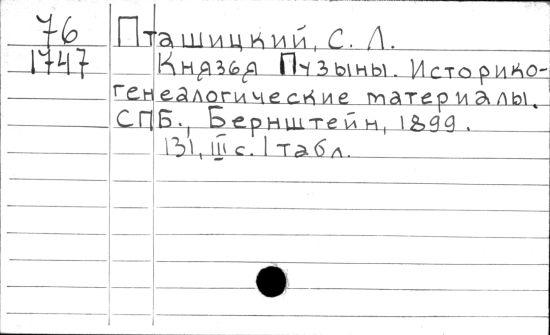 76 Пташицкий, С. Л.
1747 Князья Пузыны. Историко-
генеалогические материалы.
СПБ., Бернштейн, 1899.
131, III с. 1 табл.